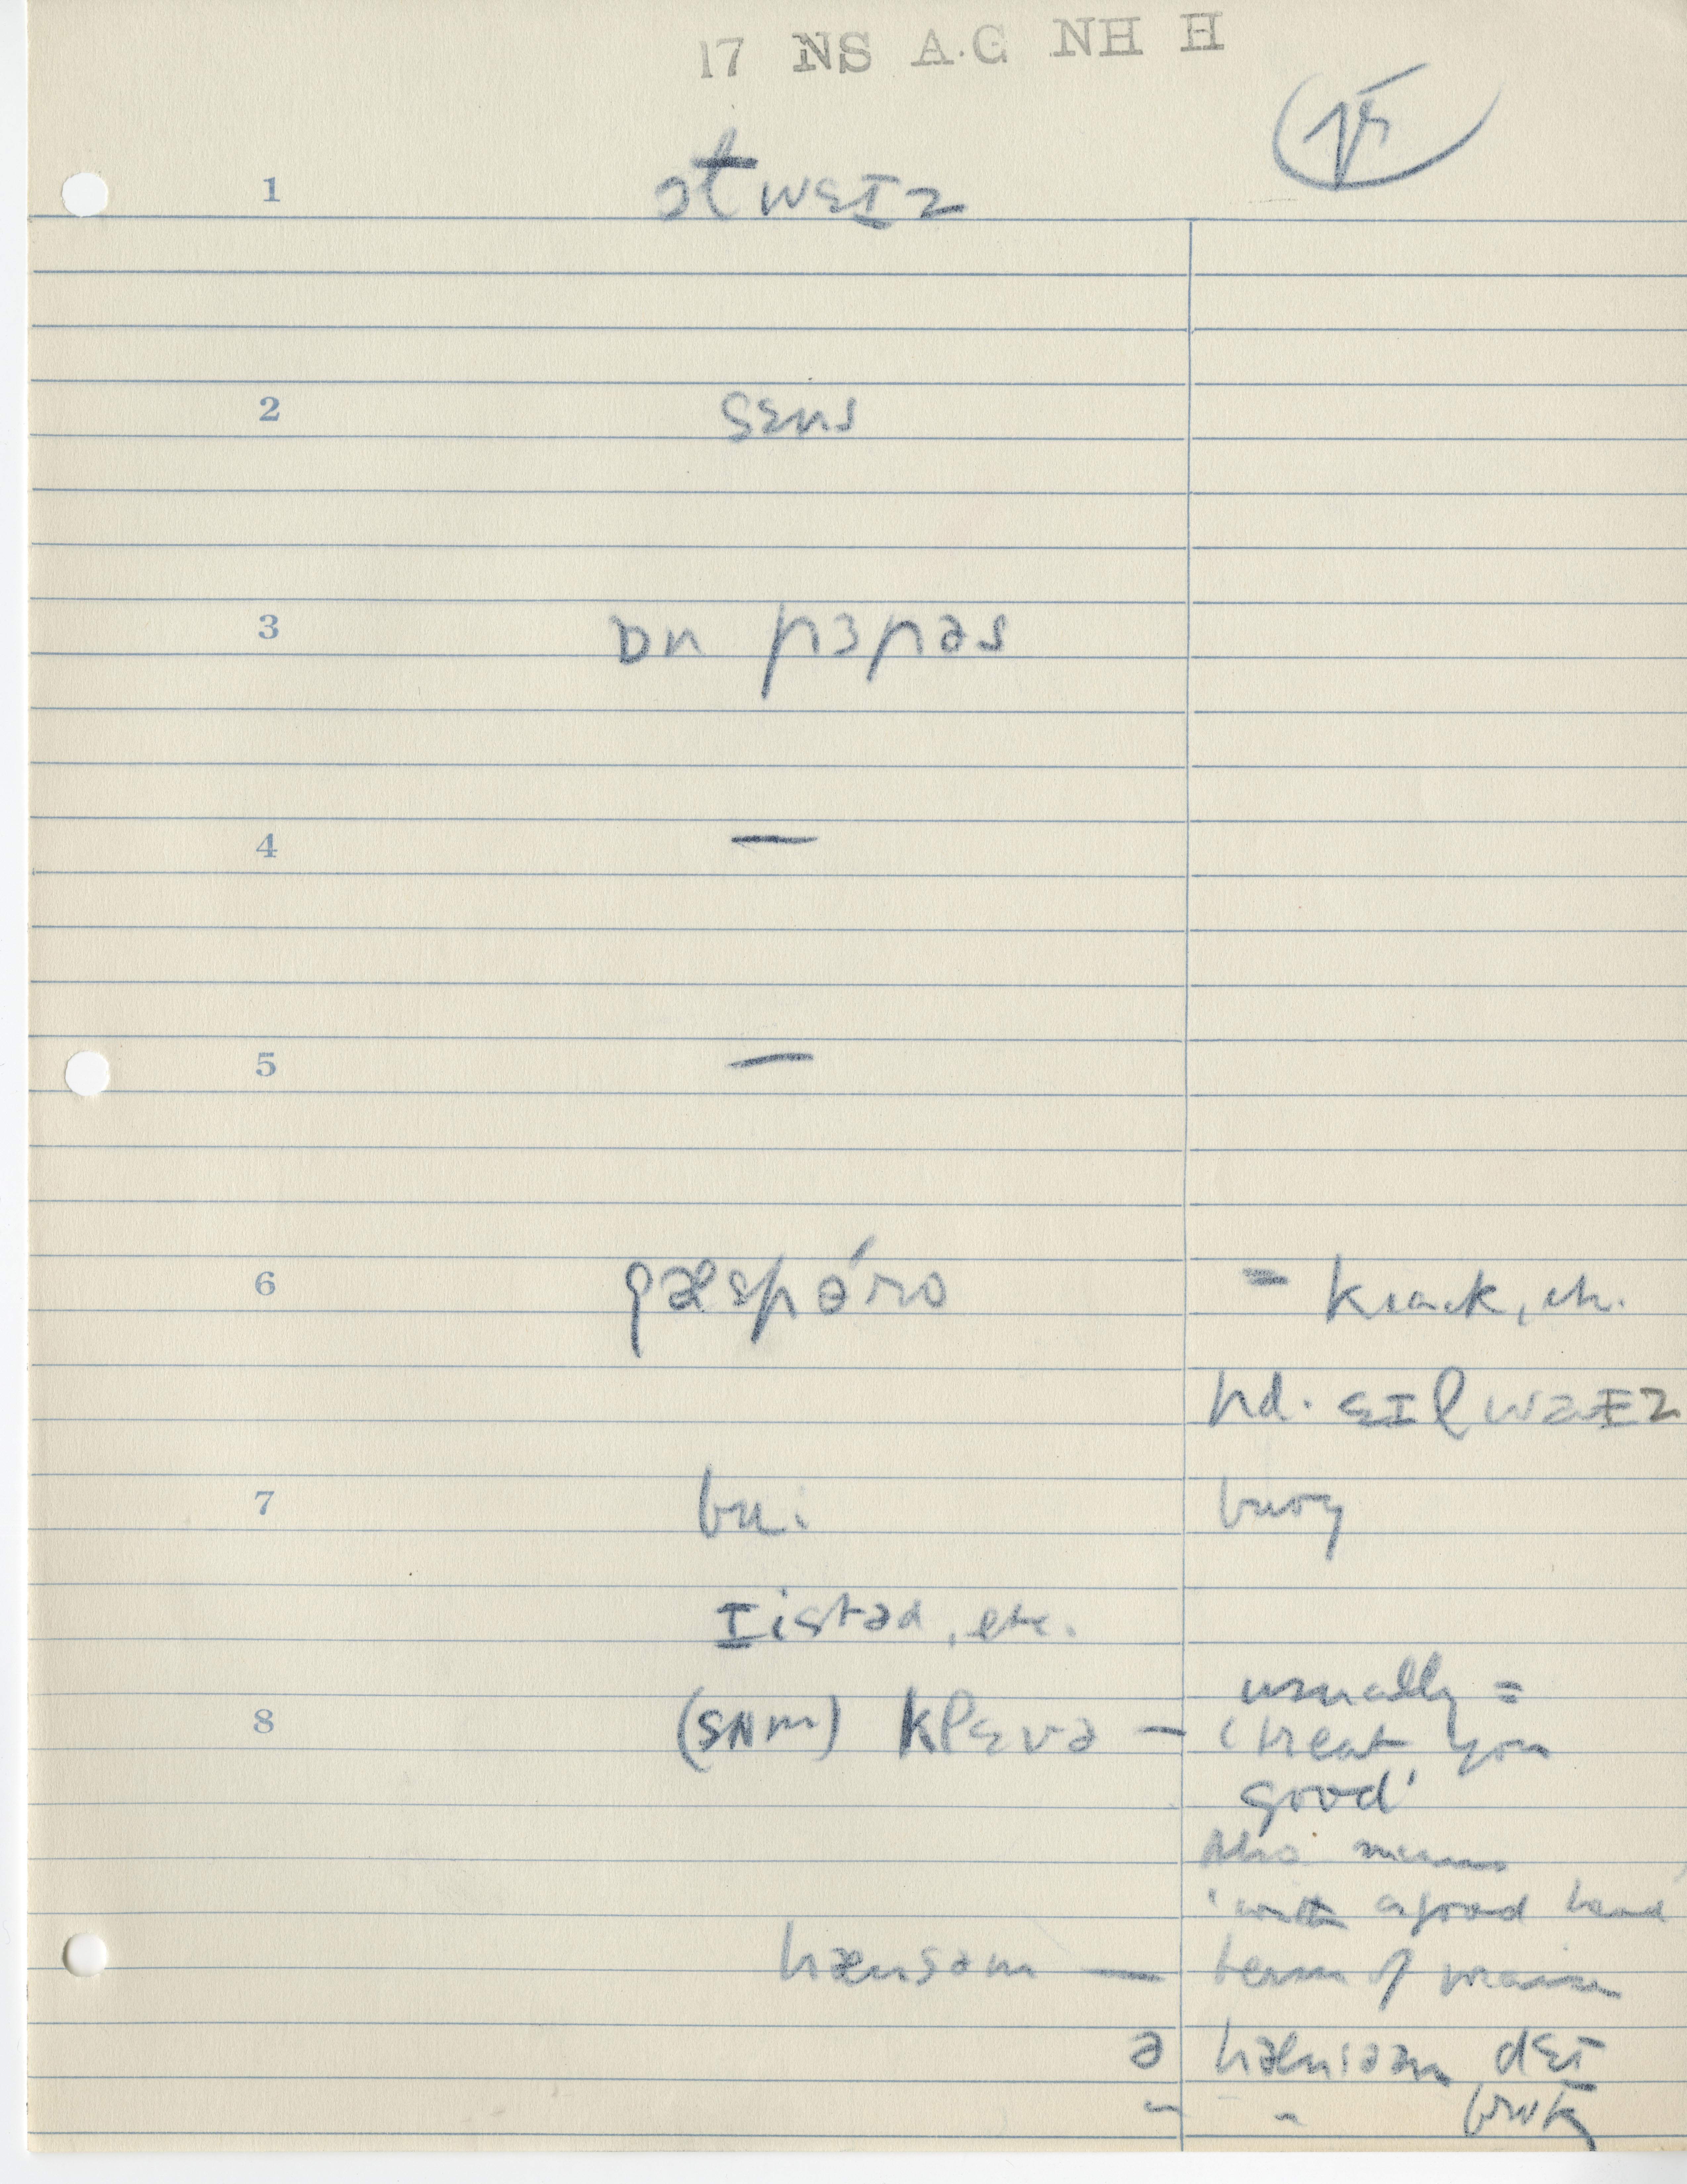 17 NS A.G NH H
1 ətwɛɪz
2 sɛns
3 ɒn pɜpəs
4 —
5 —
6 gæspə́ro = knack, etc.
nd. ɛɪlwəɪz
7 bu: buoy
Iistəd, etc.
8 (sʌm) klɛvə — usually =
'treat you
good'
Also means
'with a good head
hænsəm — term of praise
ə hænsəm dɛɪ
" " buk